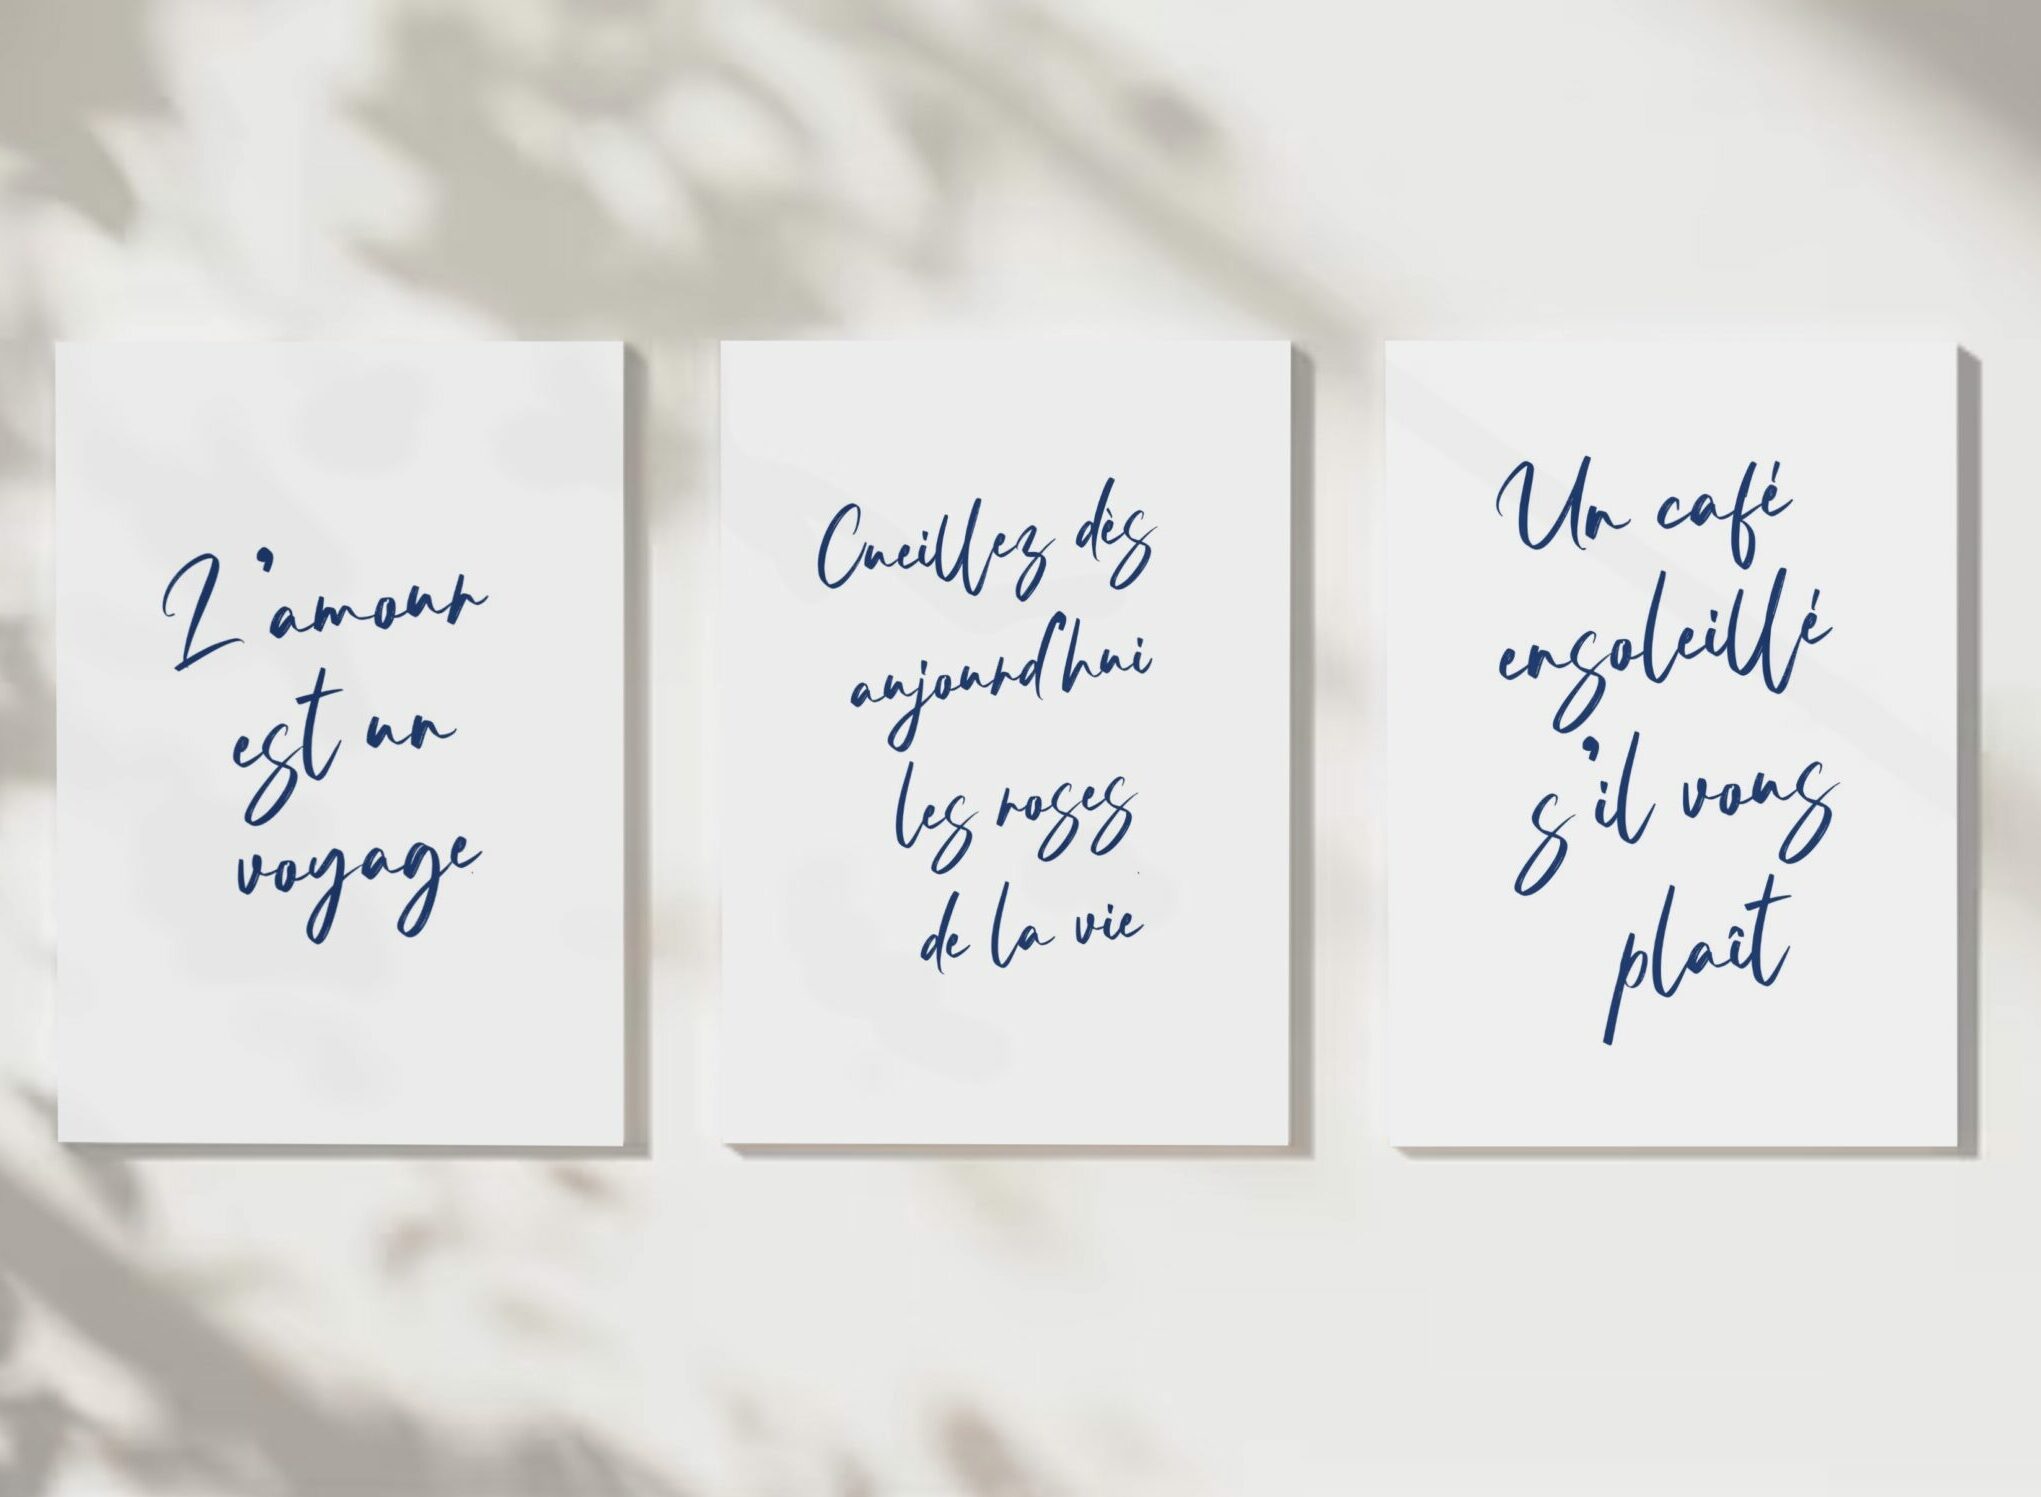 L'amour
est un
voyage
Cueillez dès
aujourd'hui
les roses
de la vie
Un café
ensoleillé
s'il vous
plaît